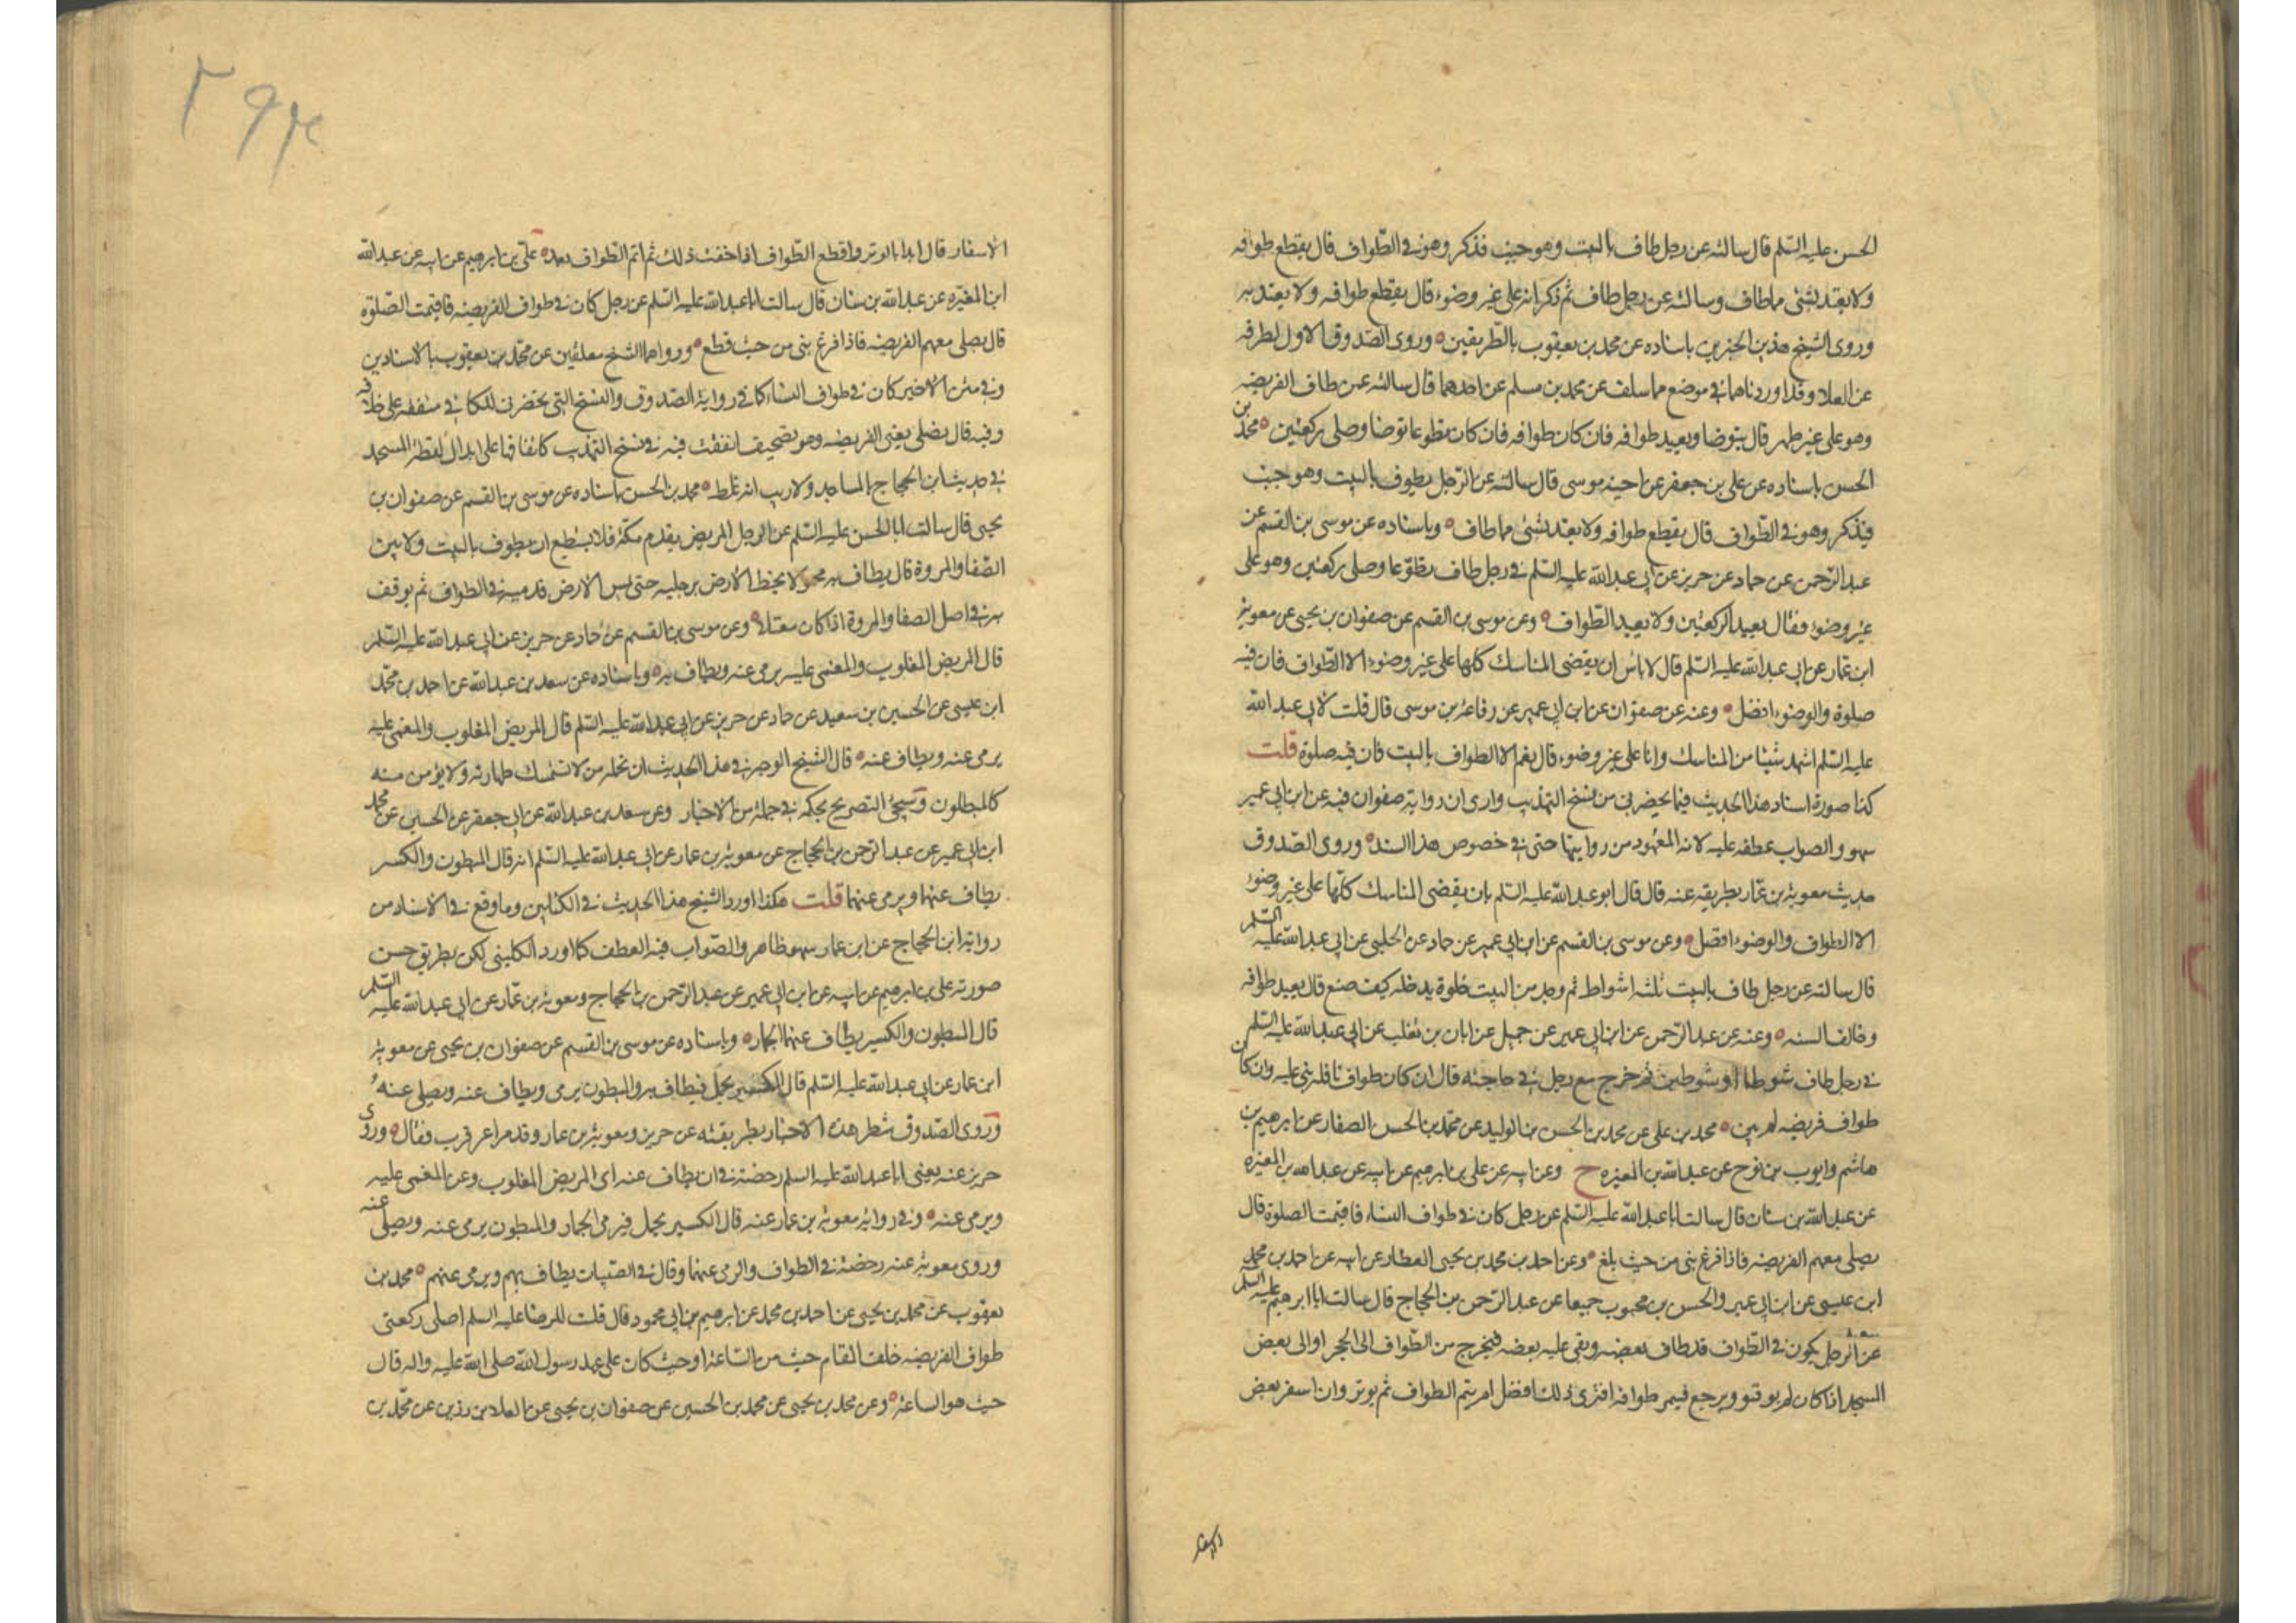 الحسن عليه السلم قال سالته عن رجل طاف بالبيت وهو جنب فذكر وهو في الطواف قال يقطع طوافه
ولا يعتد بشئ مما طاف وسالته عن رجل طاف ثم ذكر انه على غير وضوء قال يقطع طوافه ولا يعتد به
وروى الشيخ هذين الخبرين باسناده عن محمد بن يعقوب بالطريقين ه وروى الصدوق الاول بطرفه
عن العلا وقد اوردناها في موضع مما سلف عن محمد بن مسلم عن احدهما قال سالته عن طاف الفريضه
وهو على غير طهر قال يتوضا ويعيد طوافه فان كان طوافه فان كان تطوعا توضا وصلى ركعتين ه محمد بن
الحسن باسناده عن على بن جعفر عن اخيه موسى قال سالته عن الرجل يطوف بالبيت وهو جنب
فيذكر وهو في الطواف قال يقطع طوافه ولا يعتد بشئ مما طاف ه وباسناده عن موسى بن القسم عن
عبد الرحمن عن حماد عن حريز عن ابى عبد الله عليه السلم في رجل طاف تطوعا وصلى ركعتين وهو على
غير وضوء فقال يعيد الركعتين ولا يعيد الطواف ه وعن موسى بن القسم عن صفوان بن يحيى عن معوية
ابن عمار عن ابى عبد الله عليه السلم قال لا باس ان يقضى المناسك كلها على غير وضوء الا الطواف فان فيه
صلوة والوضوء افضل ه وعنه عن صفوان عن ابن ابى عمير عن رفاعة بن موسى قال قلت لابى عبد الله
عليه السلم اشهد شيئا من المناسك وانا على غير وضوء قال نعم الا الطواف بالبيت فان فيه صلوة قلت
كذا صورة اسناد هذا الحديث فيما يحضرنى من نسخ التهذيب وارى ان رواية صفوان فيه عن ابن ابى عمير
سهو والصواب عطفه عليه لانه المعهود من روايتها حتى في خصوص هذا السند ه وروى الصدوق
حديث معوية بن عمار بطريقه عنه قال قال ابو عبد الله عليه السلم بان يقضى المناسك كلها على غير وضوء
الا الطواف والوضوء افضل ه وعن موسى بن القسم عن ابن ابى عمير عن حماد عن الحلبى عن ابى عبد الله عليه السلم
قال سالته عن رجل طاف بالبيت ثلثة اشواط ثم وجد من البيت خلوة يدخله كيف صنع قال يعيد طوافه
وخالف السنه ه وعنه عن عبد الرحمن عن ابن ابى عمير عن جميل عن ابان بن تغلب عن ابى عبد الله عليه السلم
في رجل طاف شوطا او شوطين ثم خرج مع رجل في حاجته قال ان كان طواف نافله بنى عليه وان كان
طواف فريضه لم يبن ه محمد بن على عن محمد بن الحسن بن الوليد عن محمد بن الحسن الصفار عن ابرهيم بن
هاشم وايوب بن نوح عن عبد الله بن المغيره ح وعن ابيه عن على بن ابرهيم عن ابيه عن عبد الله بن المغيره
عن عبد الله بن سنان قال سالت ابا عبد الله عليه السلم عن رجل كان في طواف النساء فاقيمت الصلوة قال
يصلى معهم الفريضه فاذا فرغ بنى من حيث بلغ ه وعن احمد بن محمد بن يحيى العطار عن ابيه عن احمد بن محمد
ابن عيسى عن ابن ابى عمير والحسن بن محبوب جميعا عن عبد الرحمن بن الحجاج قال سالت ابا ابرهيم عليه السلم
عن الرجل يكون في الطواف قد طاف بعضه وبقى عليه بعضه فيخرج من الطواف الى الحجر او الى بعض
المسجد اذا كان لم يوتر ويرجع فيتم طوافه افترى ذلك افضل ام يتم الطواف ثم يوتر وان اسفر بعض
الاسفار
الاسفار قال ابدا بالوتر واقطع الطواف اذا خفت ذلك ثم اتم الطواف بعد ه على بن ابرهيم عن ابيه عن عبد الله
ابن المغيره عن عبد الله بن سنان قال سالت ابا عبد الله عليه السلم عن رجل كان في طواف الفريضه فاقيمت الصلوة
قال يصلى معهم الفريضه فاذا فرغ بنى من حيث قطع ه ورواهما الشيخ معلقين عن محمد بن يعقوب بالاسنادين
وفي متن الاخير كان في طواف النساء كما في رواية الصدوق والنسخ التى تحضرنى للكافى متفقه على خلافه
وفيه قال يصلى يعنى الفريضه وهو تصحيف اتفقت فيه نسخ التهذيب كاتفاقها على ابدال لفظة المسجد
في حديث ابن الحجاج بالمساجد ولا ريب انه غلط ه محمد بن الحسن باسناده عن موسى بن القسم عن صفوان بن
يحيى قال سالت ابا الحسن عليه السلم عن الرجل المريض يقدم مكة فلا يستطيع ان يطوف بالبيت ولا بين
الصفا والمروة قال يطاف به محمولا يخط الارض برجليه حتى يمس الارض قدميه في الطواف ثم يوقف
به في اصل الصفا والمروة اذا كان معتلا ه وعن موسى بن القسم عن حماد عن حريز عن ابى عبد الله عليه السلم
قال المريض المغلوب والمغمى عليه يرمى عنه ويطاف به ه وباسناده عن سعد بن عبد الله عن احمد بن محمد
ابن عيسى عن الحسين بن سعيد عن حماد عن حريز عن ابى عبد الله عليه السلم قال المريض المغلوب والمغمى عليه
يرمى عنه ويطاف عنه ه قال الشيخ الوجه في هذا الحديث ان نحمله من لا تتمسك طهارته ولا يؤمن منه
كالمبطون وسيجئ التصريح بحكمه في جملة من الاخبار وعن سعد بن عبد الله عن ابى جعفر عن الحسين عن محمد
ابن ابى عمير عن عبد الرحمن بن الحجاج عن معوية بن عمار عن ابى عبد الله عليه السلم انه قال المبطون والكسير
يطاف عنهما ويرمى عنهما قلت هكذا اورد الشيخ هذا الحديث في الكتابين وما وقع في الاسناد من
رواية ابن الحجاج عن ابن عمار سهو ظاهر والصواب فيه العطف كما اورد الكلينى لكن بطريق حسن
صورته على بن ابرهيم عن ابيه عن ابن ابى عمير عن عبد الرحمن بن الحجاج ومعوية بن عمار عن ابى عبد الله عليه السلم
قال المبطون والكسير يطاف عنهما الجمار ه وباسناده عن موسى بن القسم عن صفوان بن يحيى عن معوية
ابن عمار عن ابى عبد الله عليه السلم قال الكسير يحمل فيطاف به والمبطون يرمى ويطاف عنه ويصلى عنه
وروى الصدوق شطر هذه الاخبار بطريقته عن حريز ومعوية بن عمار وقد مرا عن قرب فقال ه وروى
حريز عنه يعنى ابا عبد الله عليه السلم رخصة في ان يطاف عنه اى المريض المغلوب وعن المغمى عليه
ويرمى عنه ه وفي رواية معوية بن عمار عنه قال الكسير يحمل فيرمى الجمار والمبطون يرمى عنه ويصلى عنه
وروى معوية عنه رخصة في الطواف والرمى عنهما وقال في الصبيان يطاف بهم ويرمى عنهم ه محمد بن
يعقوب عن محمد بن يحيى عن احمد بن محمد عن ابرهيم بن ابى محمود قال قلت للرضا عليه السلم اصلى ركعتى
طواف الفريضه خلف المقام حيث هو الساعة او حيث كان على عهد رسول الله صلى الله عليه واله قال
حيث هو الساعة ه وعن محمد بن يحيى عن محمد بن الحسين عن صفوان بن يحيى عن العلا بن رزين عن محمد بن